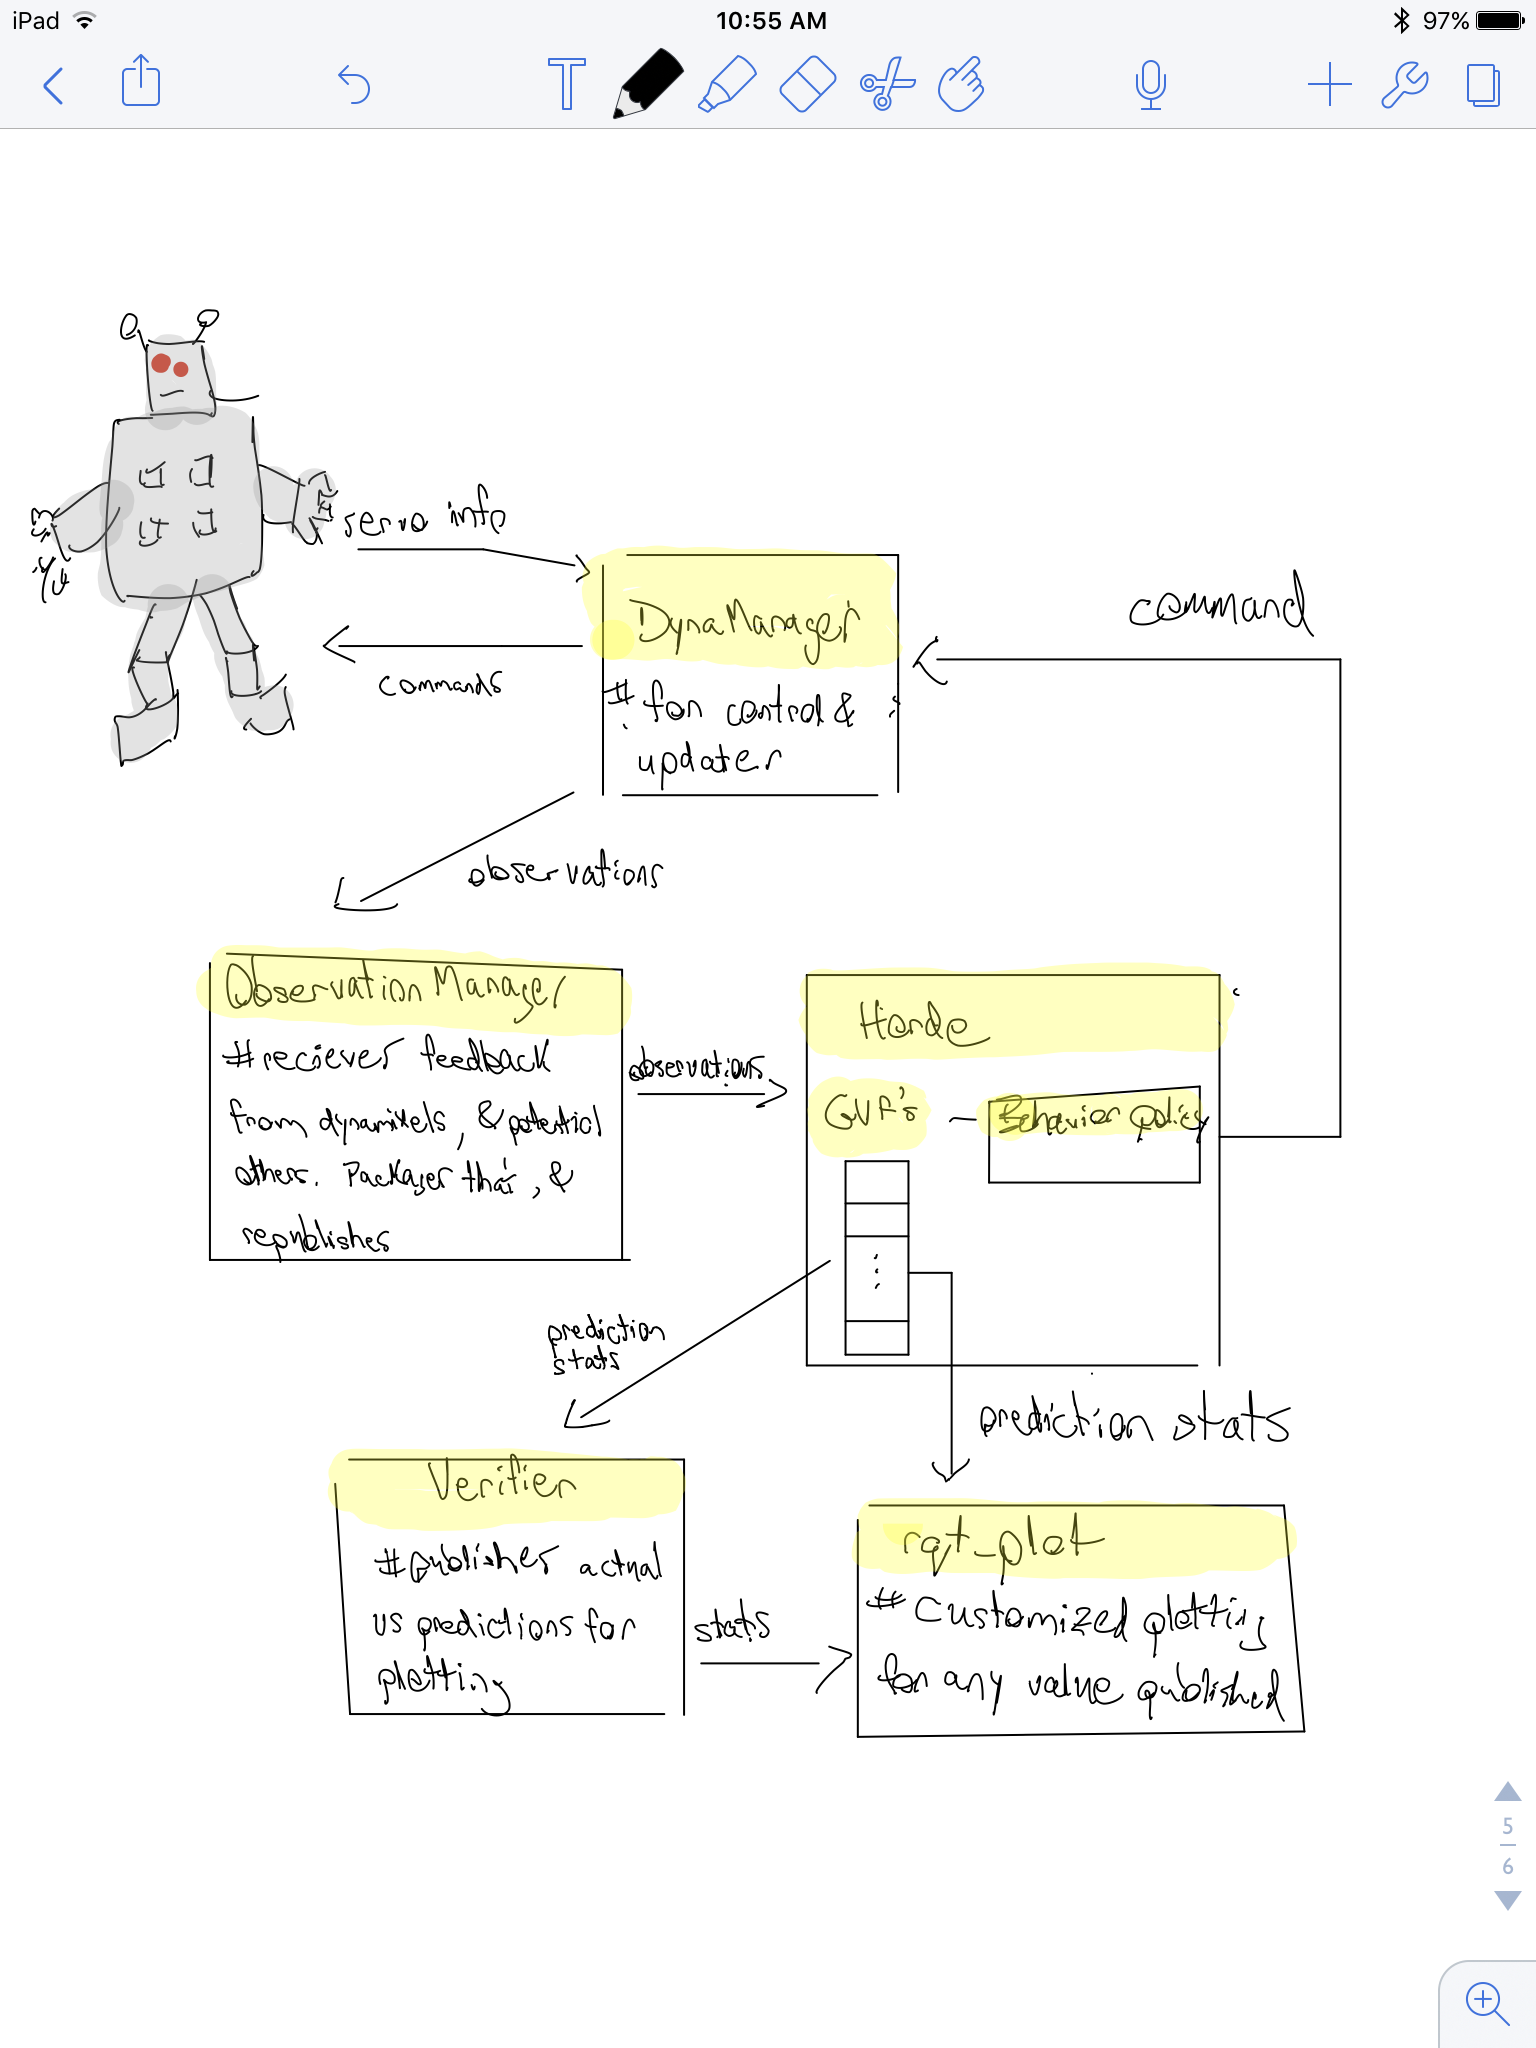 iPad 10:55 AM 97%
servo info
DynaManager
command
commands
# for control &
updater
observations
Observation Manager
#reciever feedback
from dynamixels, & potential
others. Packages that, &
republishes
observations
Horde
GVF's - Behavior policy
prediction
stats
prediction stats
Verifier
#publishes actual
vs predictions for
plotting
stats
rqt_plot
# Customized plotting
for any value published
5
6